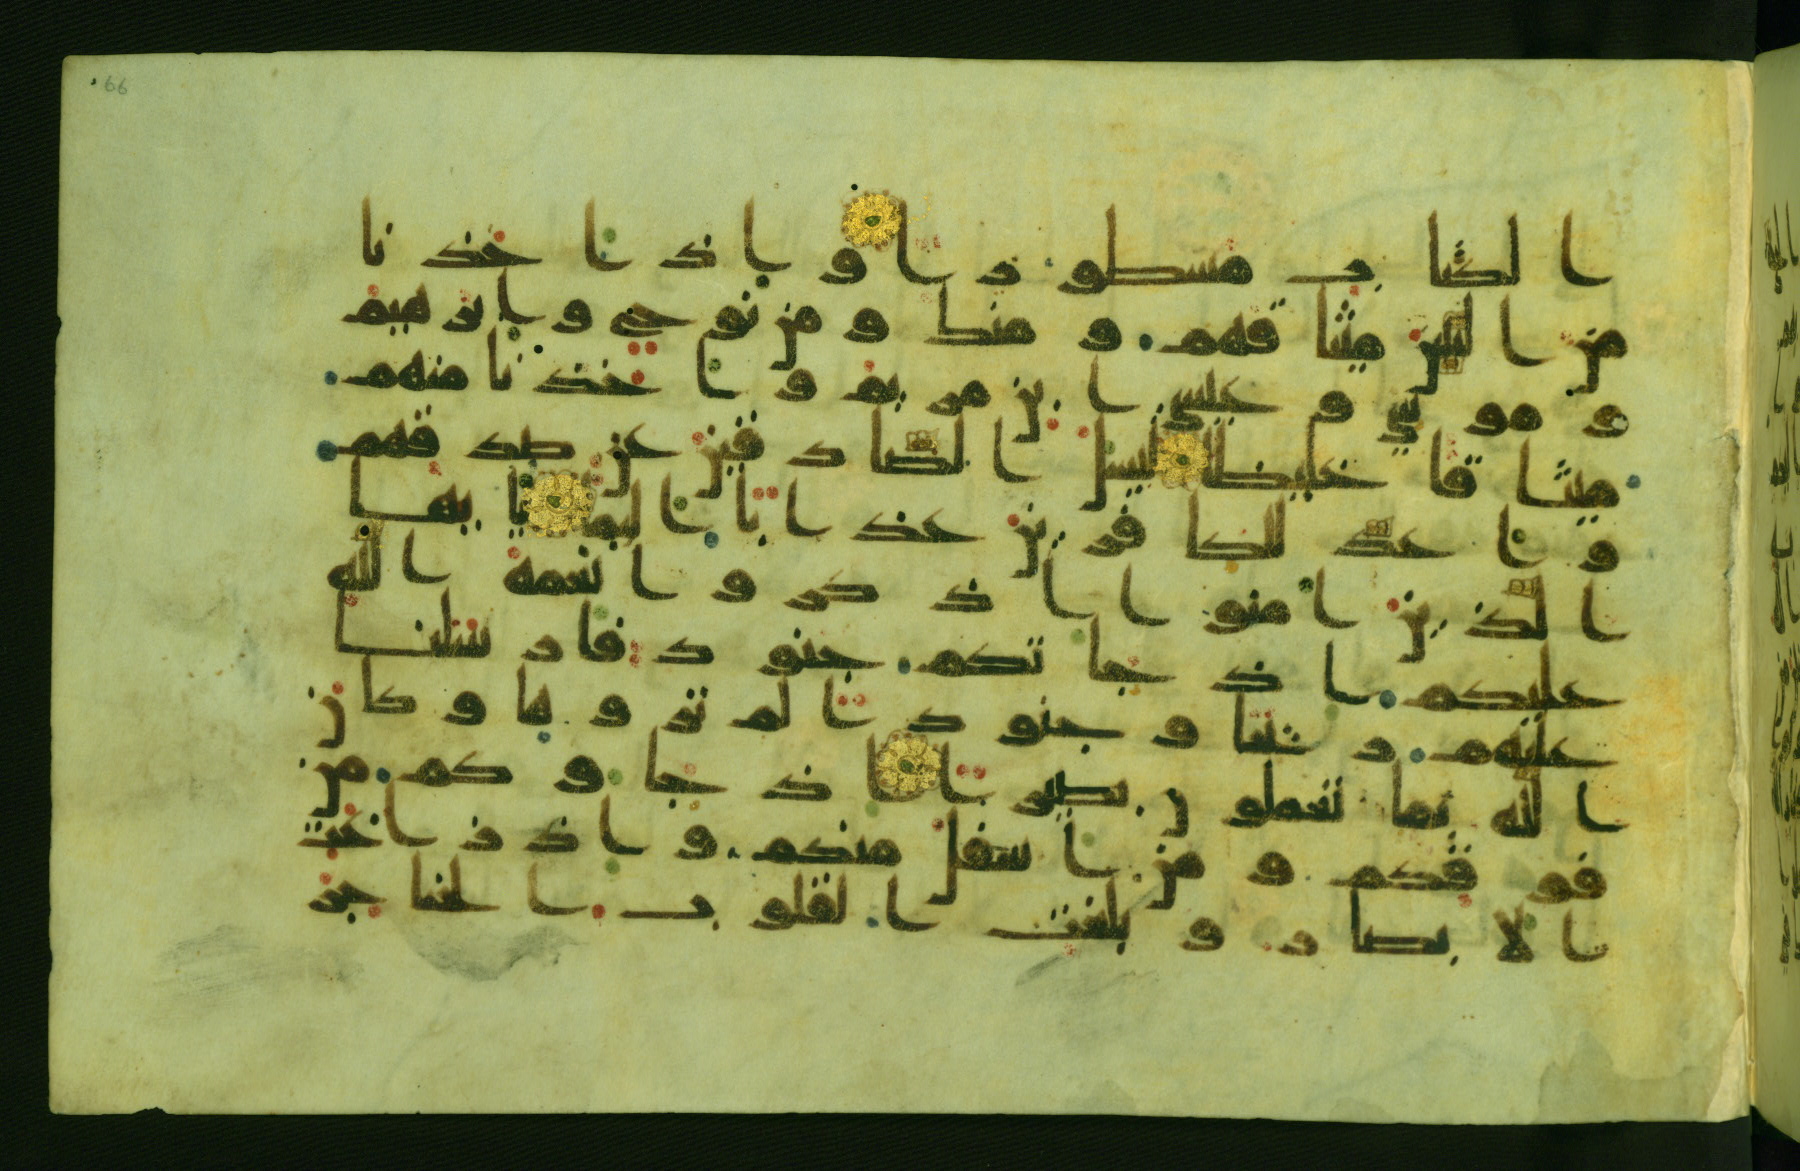 66
ا لكتا ب مسطو ر ا و ا ذ ا خذ نا
من ا لنبين ميثا قهم و منك و من نو ح و ا بر هيم
و مو سى و عيسى ا بن مر يم و ا خذ نا منهم
ميثا قا غليظا ليسل ا لصا د قين عن صد قهم
و ا عد للكا فر ين عذ ا با ا ليما يا يها
ا لذ ين ا منو ا ا ذ كر و ا نعمة ا لله
عليكم ا ذ جا تكم جنو د فا ر سلنا
عليهم ر يحا و جنو د ا لم تر و ها و كا ن
ا لله بما تعملو ن بصير ا ا ذ جا و كم من
فو قكم و من ا سفل منكم و ا ذ ز ا غت
ا لا بصا ر و بلغت ا لقلو ب ا لحنا جر